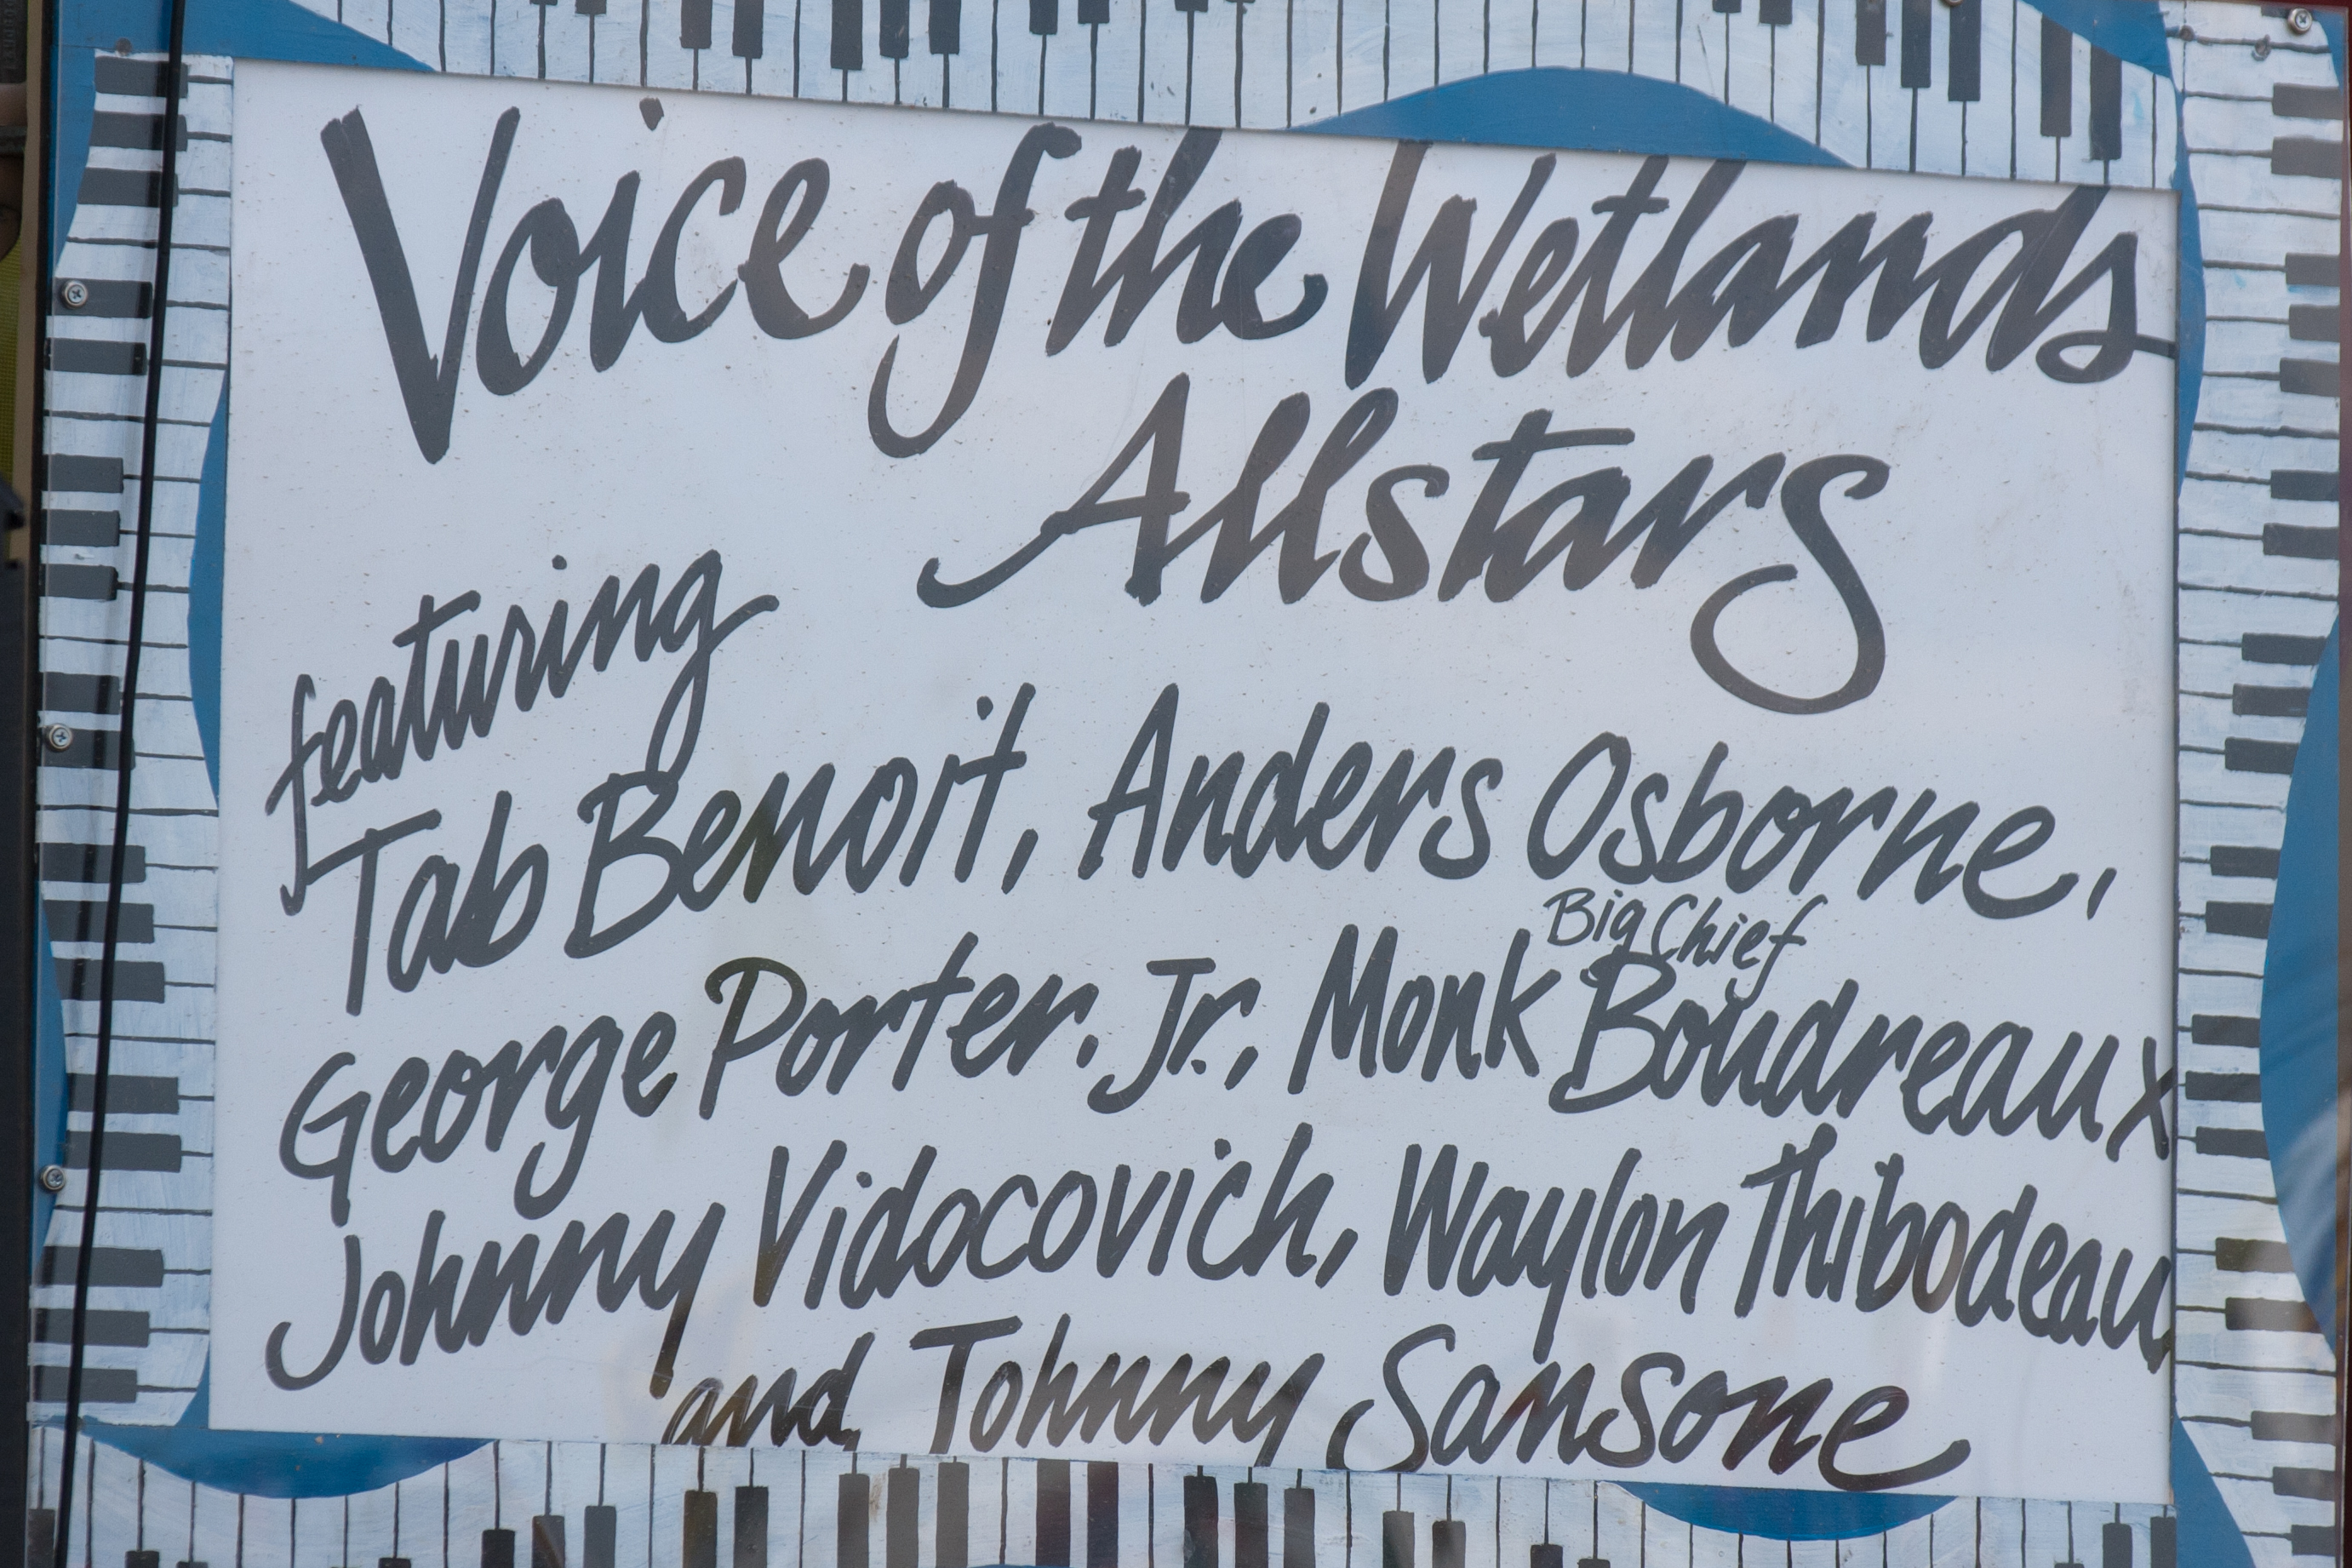 Voice of the Wetlands
Allstars
featuring
Tab Benoit, Anders Osborne,
Big Chief
George Porter, Jr., Monk Boudreaux
Johnny Vidocovich, Waylon Thibodeau,
and Johnny Sansone